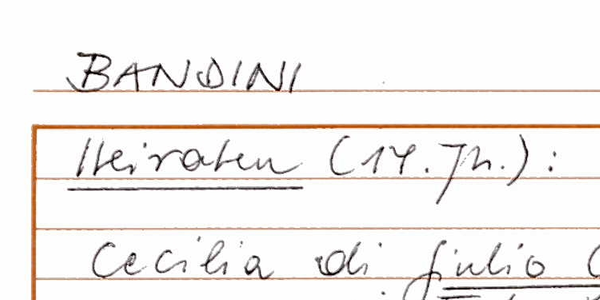 BANDINI
Heiraten (17. Jh.):
Cecilia di Giulio